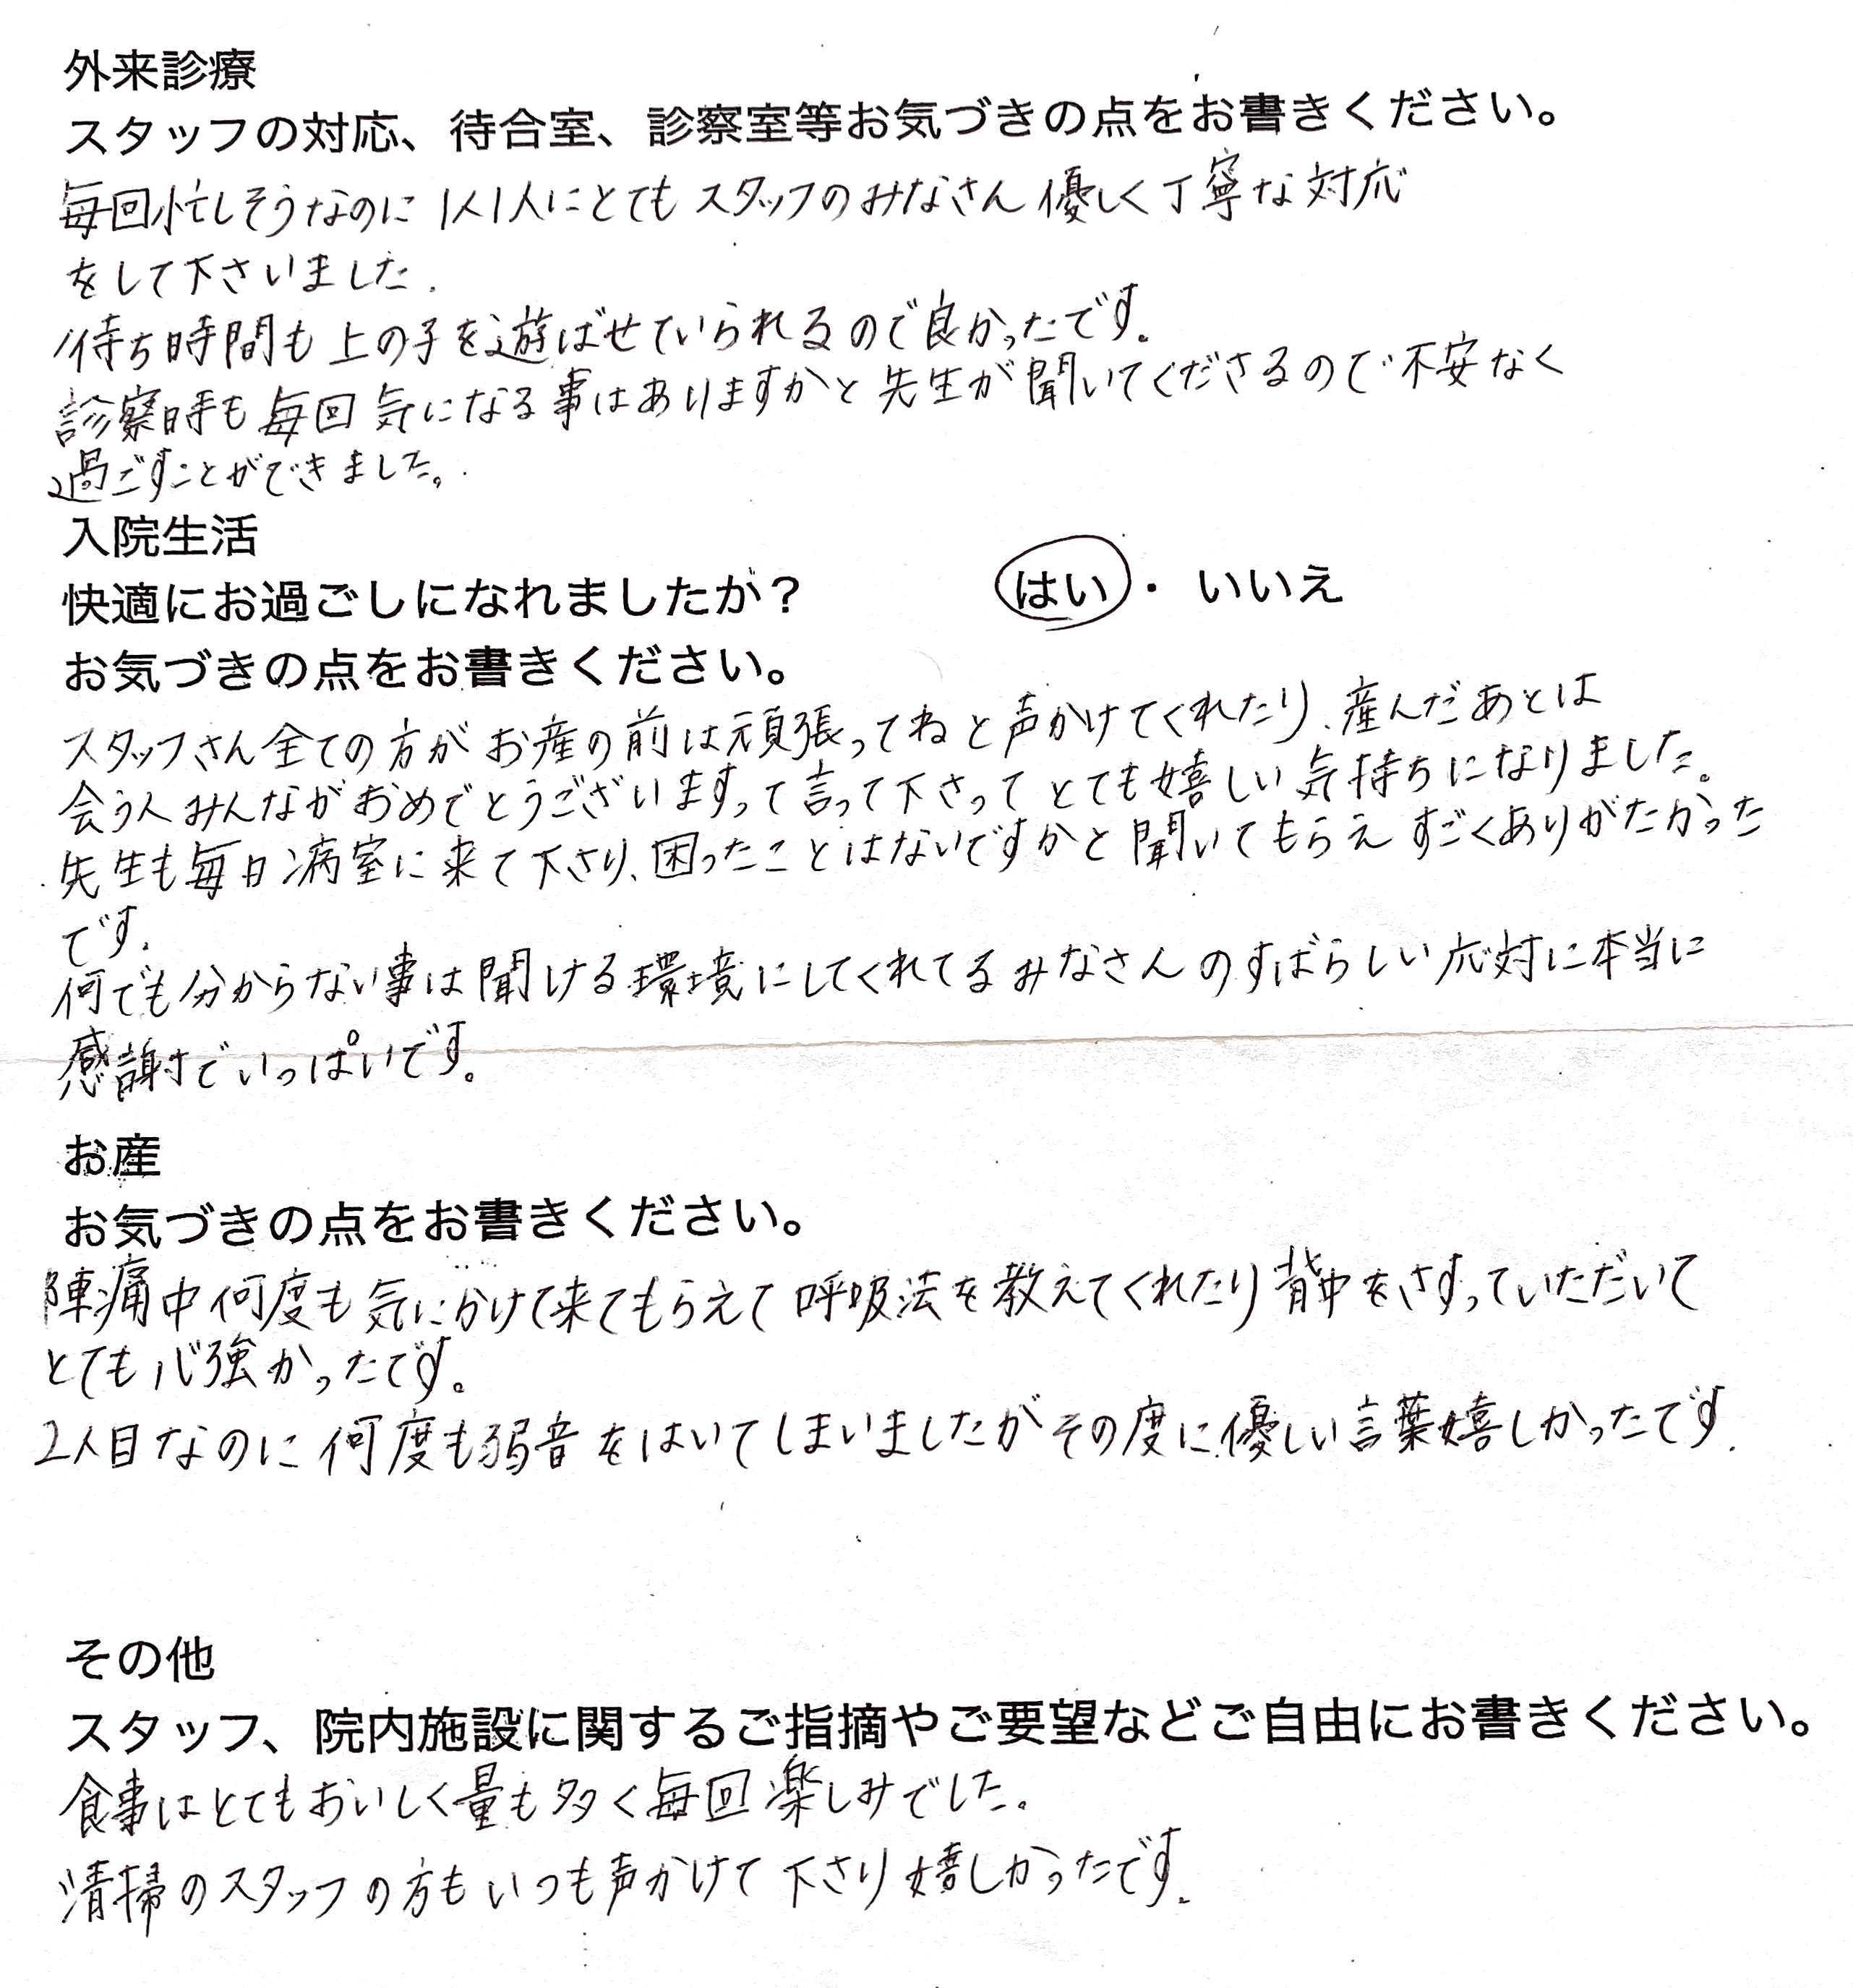 外来診療
スタッフの対応、待合室、診察室等お気づきの点をお書きください。
毎回忙しそうなのに1人1人にとてもスタッフのみなさん優しく丁寧な対応
をして下さいました.
待ち時間も上の子を遊ばせていられるので良かったです。
診察時も毎回気になる事はありますかと先生が聞いてくださるので不安なく
過ごすことができました。
入院生活
快適にお過ごしになれましたか？ はい・いいえ
お気づきの点をお書きください。
スタッフさん全ての方がお産の前は頑張ってねと声かけてくれたり、産んだあとは
会う人みんながおめでとうございますって言って下さってとても嬉しい気持ちになりました。
先生も毎日病室に来て下さり、困ったことはないですかと聞いてもらえすごくありがたかった
です.
何でも分からない事は聞ける環境にしてくれてるみなさんのすばらしい応対に本当に
感謝でいっぱいです。
お産
お気づきの点をお書きください。
陣痛中何度も気にかけて来てもらえて呼吸法を教えてくれたり背中をさすっていただいて
とても心強かったです。
2人目なのに何度も弱音をはいてしまいましたがその度に優しい言葉嬉しかったです.
その他
スタッフ、院内施設に関するご指摘やご要望などご自由にお書きください。
食事はとてもおいしく量も多く毎回楽しみでした。
清掃のスタッフの方もいつも声かけて下さり嬉しかったです.